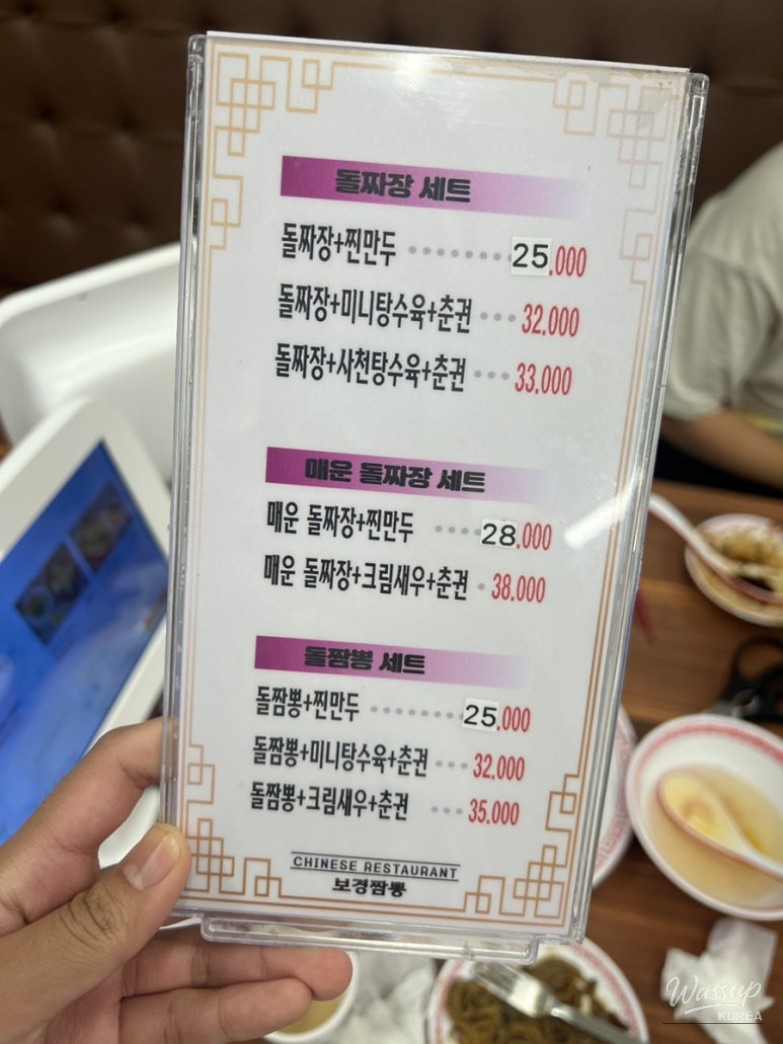 돌짜장 세트
돌짜장+찐만두 ········ 25,000
돌짜장+미니탕수육+춘권 ··· 32,000
돌짜장+사천탕수육+춘권 ··· 33,000
매운 돌짜장 세트
매운 돌짜장+찐만두 ···· 28,000
매운 돌짜장+크림새우+춘권 · 38,000
돌짬뽕 세트
돌짬뽕+찐만두 ········ 25,000
돌짬뽕+미니탕수육+춘권 ··· 32,000
돌짬뽕+크림새우+춘권 ···· 35,000
CHINESE RESTAURANT
보경짬뽕
Wassup
KOREA